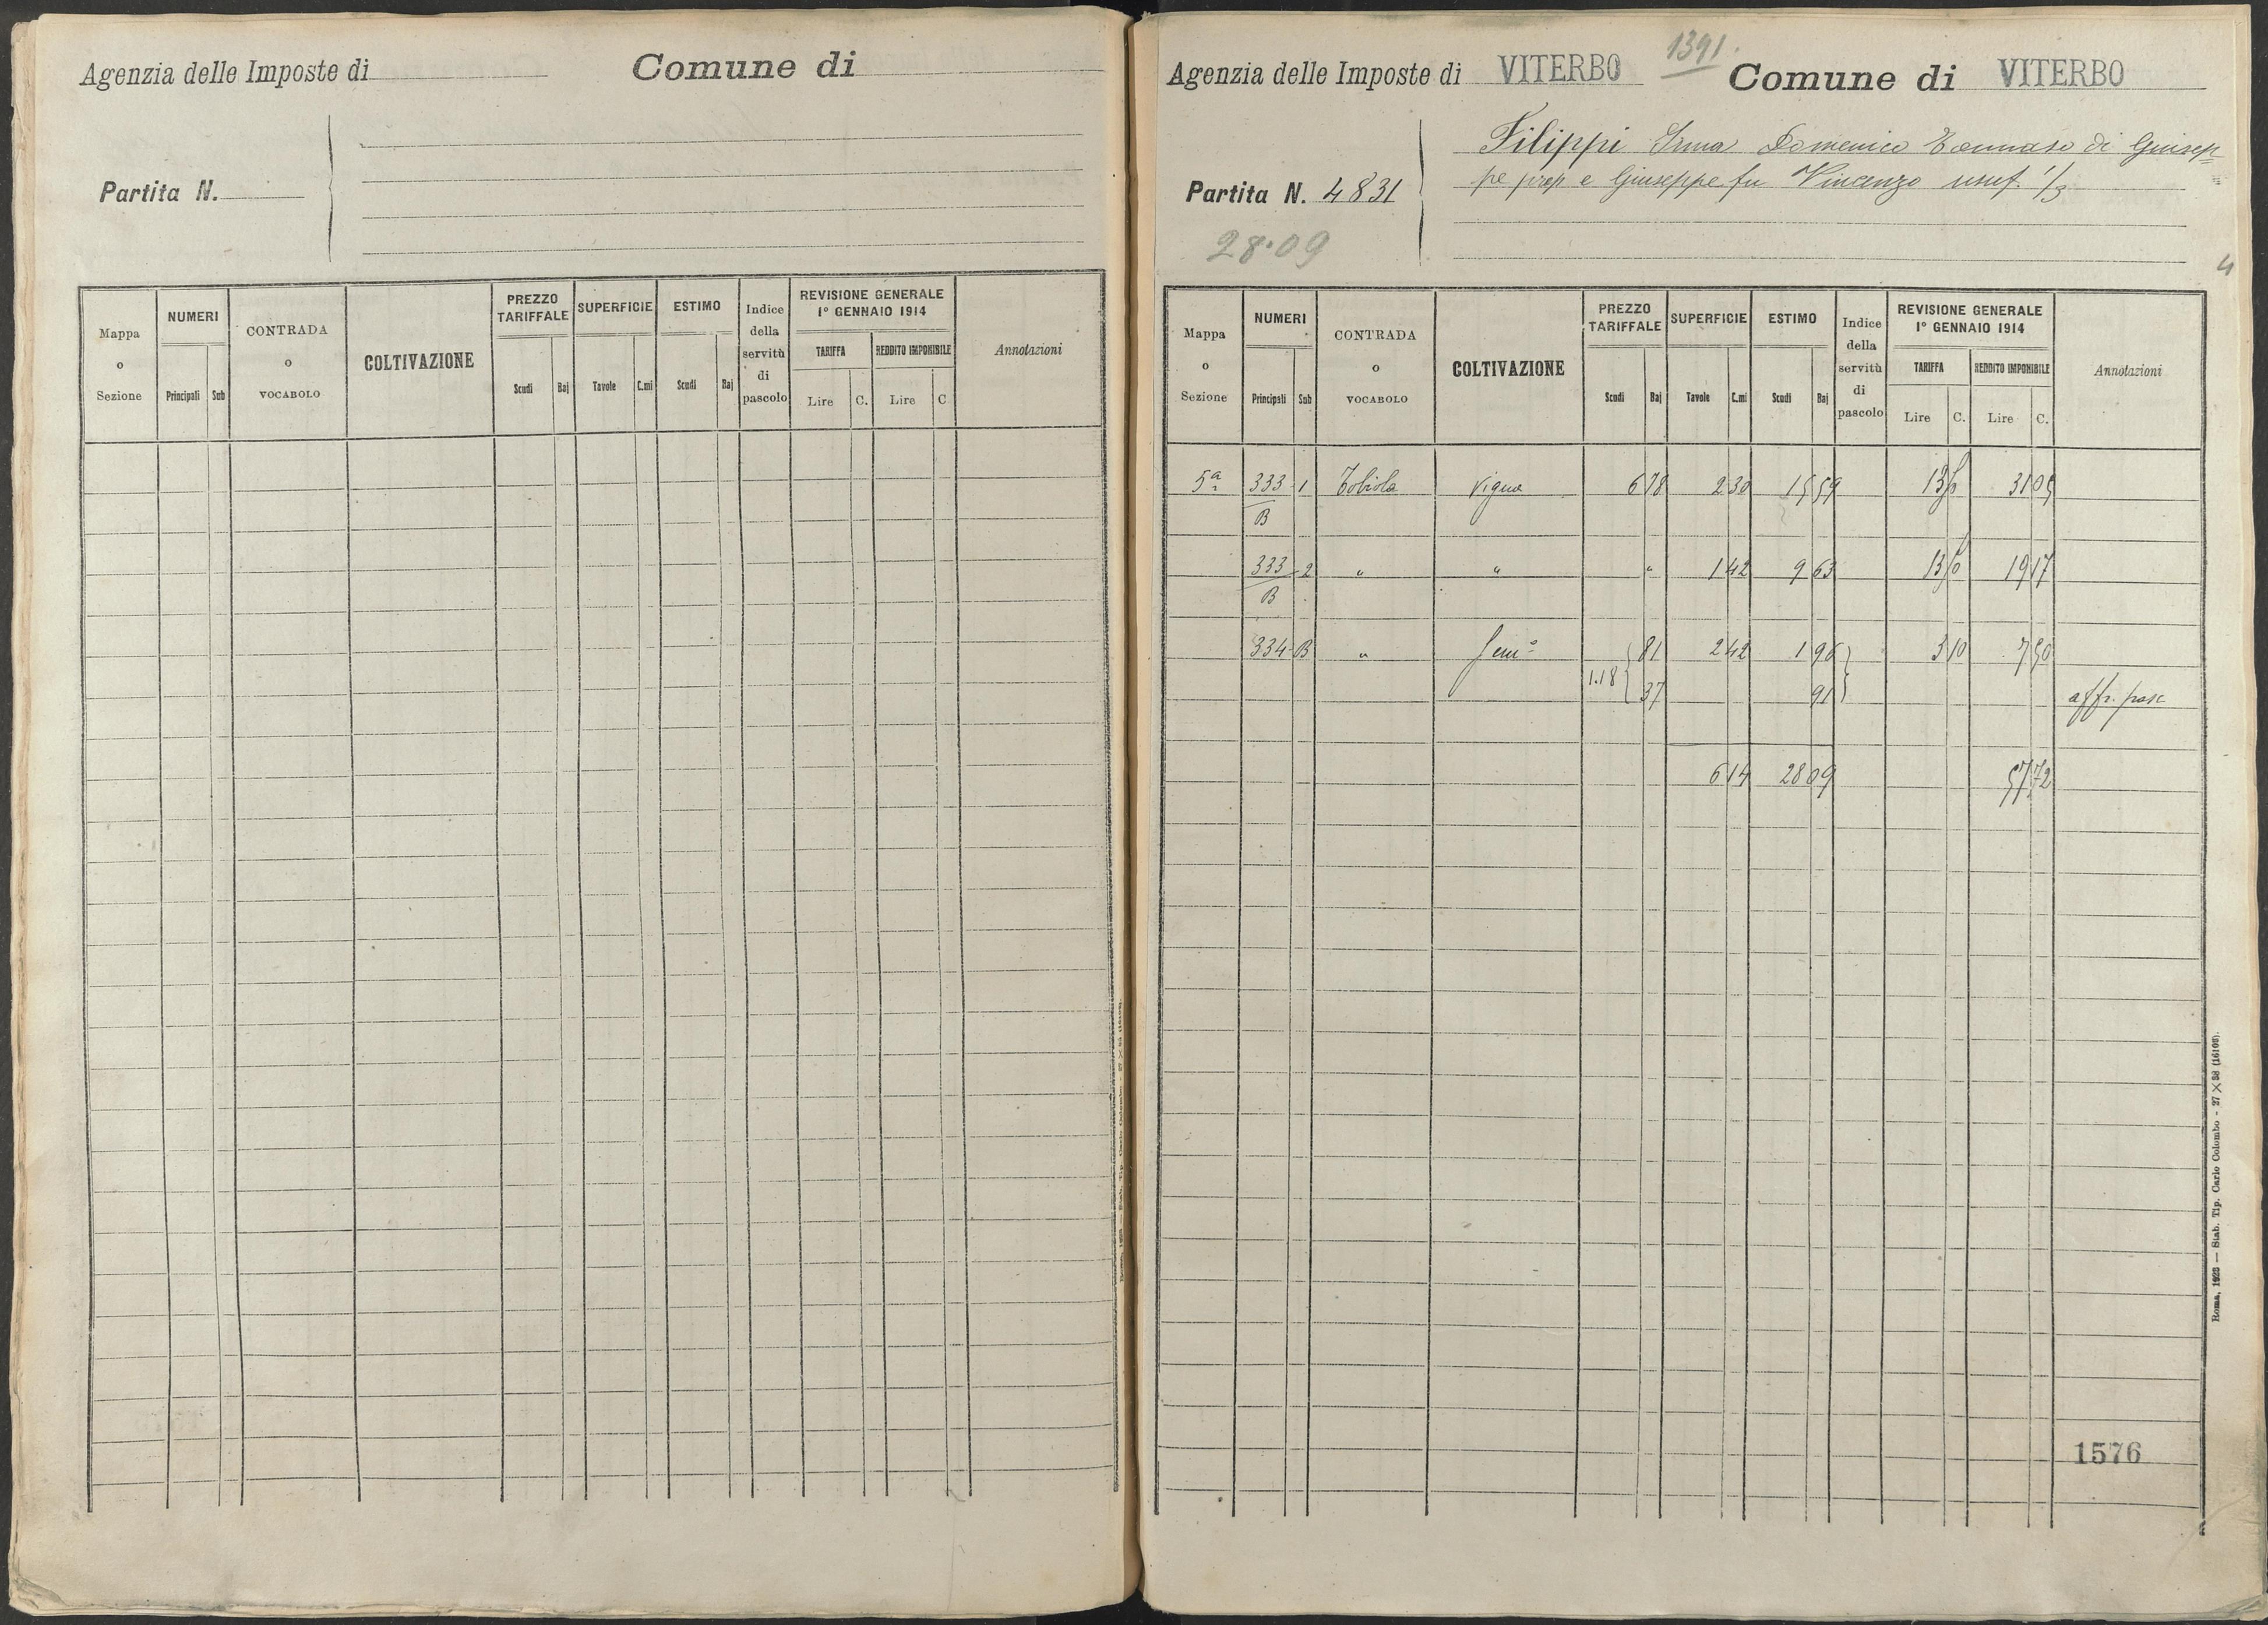 Agenzia delle Imposte di
Comune di
Partita N.
Mappa o Sezione
NUMERI
Principali Sub
CONTRADA o VOCABOLO
COLTIVAZIONE
PREZZO TARIFFALE
Scudi Baj
SUPERFICIE
Tavole C.mi
ESTIMO
Scudi Baj
Indice della servitù di pascolo
REVISIONE GENERALE
1° GENNAIO 1914
TARIFFA
Lire C.
REDDITO IMPONIBILE
Lire C
Annotazioni
1391.
Agenzia delle Imposte di VITERBO Comune di VITERBO
Filippi Irma Domenico Tommaso di Giusep=
pe prop e Giuseppe fu Vincenzo usuf. 1/3
Partita N. 4831
28.09
4
Mappa o Sezione
NUMERI
Principali Sub
CONTRADA o VOCABOLO
COLTIVAZIONE
PREZZO TARIFFALE
Scudi Baj
SUPERFICIE
Tavole C.mi
ESTIMO
Scudi Baj
Indice della servitù di pascolo
REVISIONE GENERALE
1° GENNAIO 1914
TARIFFA
Lire C.
REDDITO IMPONIBILE
Lire C.
Annotazioni
5a 333 1 Tobiola Vigna 6 78 2 30 15 59 13 50 31 05
B
333 2 " " " 1 42 9 63 13 50 19 17
B
334 B " Sem° 81 2 42 1 96 3 10 7 50
1.18 37 91 aff. pasc
6 14 28 09 57 72
1576
Roma, 1923 — Stab. Tip. Carlo Colombo - 27 × 38 (16108).